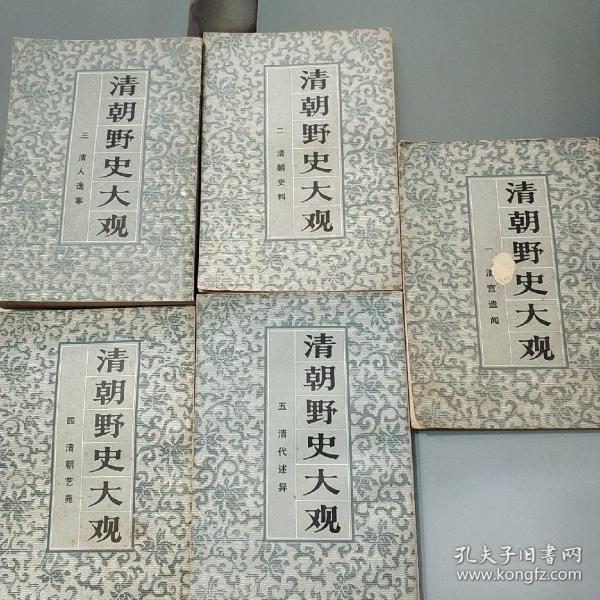 清朝野史大观
三 清人逸事
清朝野史大观
二 清朝史料
清朝野史大观
一 清宫遗闻
清朝野史大观
四 清朝艺苑
清朝野史大观
五 清代述异
孔夫子旧书网
www.kongfz.com